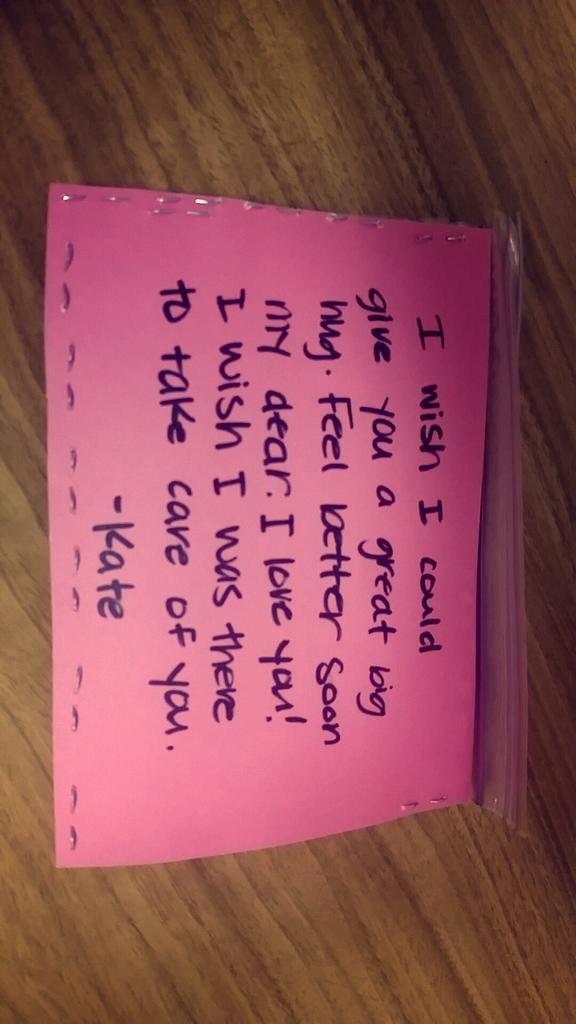 I wish I could
give you a great big
hug. Feel better soon
my dear. I love you!
I wish I was there
to take care of you.
-Kate